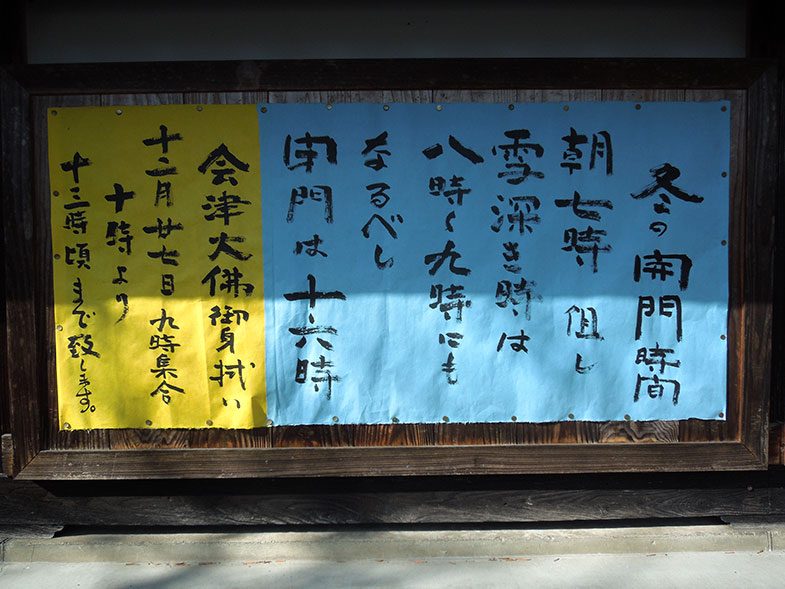 冬の開門時間
朝七時 但し
雪深き時は
八時〜九時にも
なるべし
閉門は十六時
会津大佛御身拭い
十二月廿七日九時集合
十時より
十三時頃まで致します。